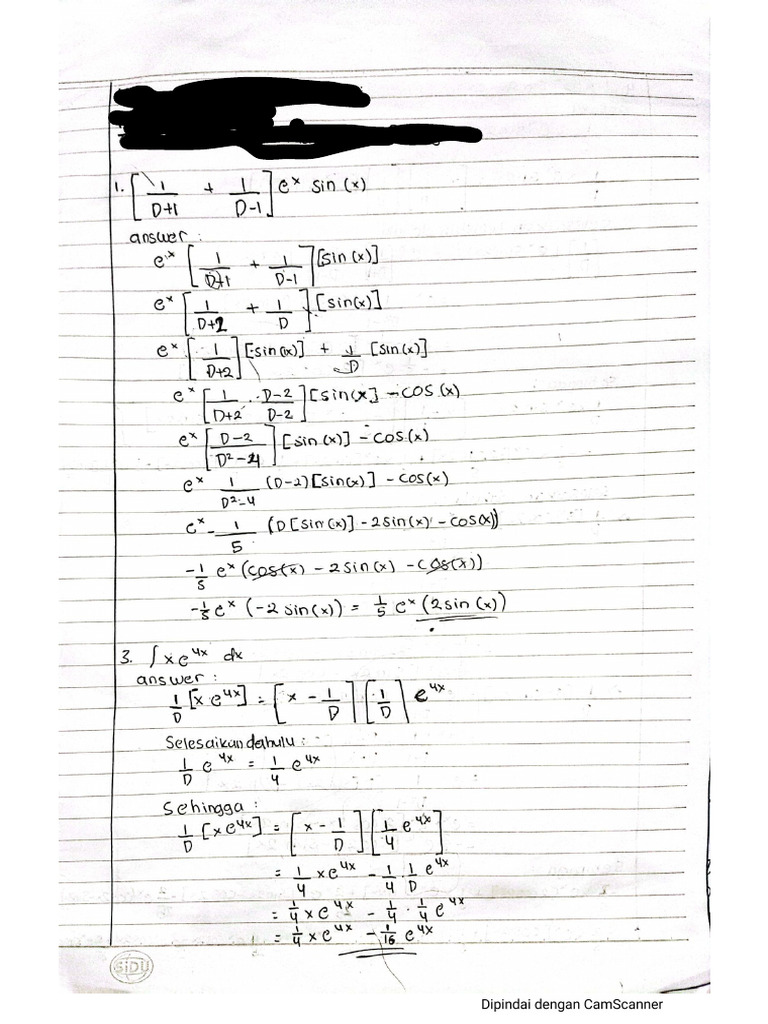 1. [1/(D+1) + 1/(D-1)] eˣ sin (x)
answer :
eˣ [1/(D+1) + 1/(D-1)] [sin (x)]
eˣ [1/(D+2) + 1/D] [sin(x)]
eˣ [1/(D+2)] [sin(x)] + 1/D [sin(x)]
eˣ [1/(D+2) · (D-2)/(D-2)] [sin(x] - cos (x)
eˣ [(D-2)/(D²-4)] [sin (x)] - cos(x)
eˣ 1/(D²-4) (D-2) [sin(x)] - cos(x)
eˣ - 1/5 (D [sin (x)] - 2 sin(x) - cos(x))
-1/5 eˣ (cos(x) - 2 sin(x) - cos(x))
-1/5 eˣ (-2 sin(x)) = 1/5 eˣ (2 sin (x))
3. ∫ x e⁴ˣ dx
answer :
1/D [x e⁴ˣ] = [x - 1/D] [1/D] e⁴ˣ
Selesaikan dahulu :
1/D e⁴ˣ = 1/4 e⁴ˣ
Sehingga :
1/D [x e⁴ˣ] = [x - 1/D] [1/4 e⁴ˣ]
= 1/4 x e⁴ˣ - 1/4 · 1/D e⁴ˣ
= 1/4 x e⁴ˣ - 1/4 · 1/4 e⁴ˣ
= 1/4 x e⁴ˣ - 1/16 e⁴ˣ
SiDU
Dipindai dengan CamScanner